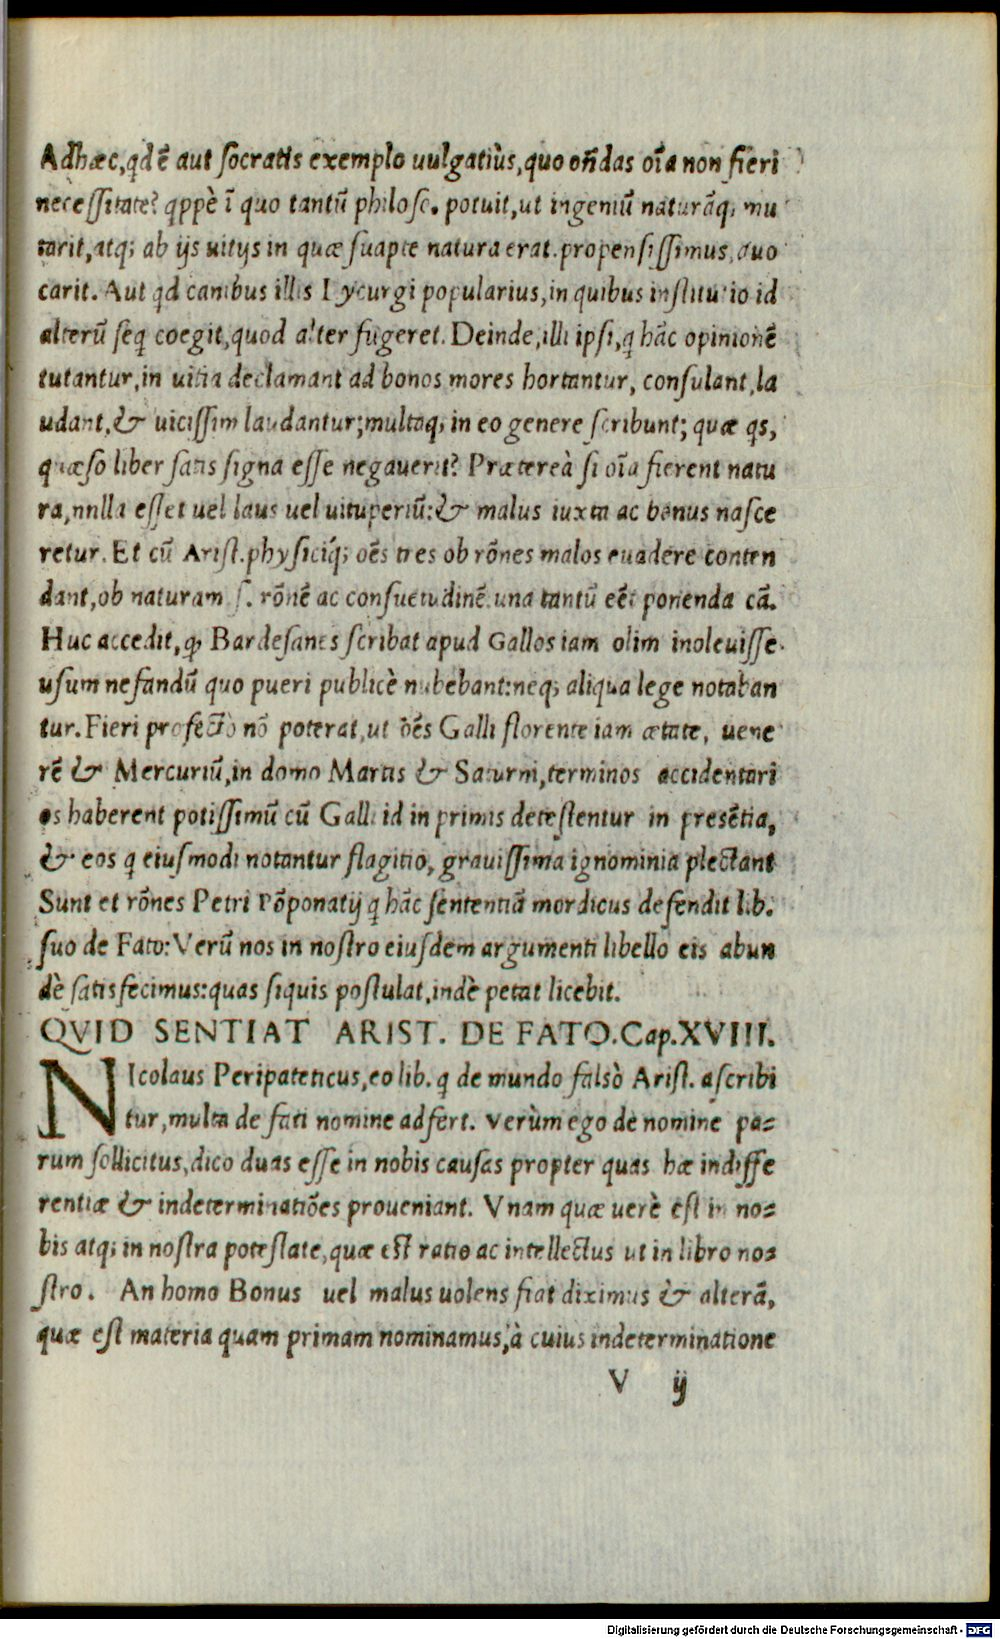 Adhæc, qd ē aut socratis exemplo uulgatiùs, quo oñdas oīa non fieri
necessitate? qppè ī quo tantū philoso. potuit, ut ingeniū naturāq; mu
tarit, atq; ab ijs uitijs in quæ suapte natura erat. propensissimus, auo
carit. Aut qd canibus illis Lycurgi popularius, in quibus institutio id
alterū seq coegit, quod alter fugeret. Deinde, illi ipsi, q hāc opinionē
tutantur, in uitia declamant ad bonos mores hortantur, consulant, la
udant, & uicissim laudantur; multaq; in eo genere scribunt; quæ qs,
quæso liber satis signa esse negauerit? Prætereà si oīa fierent natu
ra, nnlla esset uel laus uel uituperiū: & malus iuxta ac bonus nasce
retur. Et cū Arist. physiciq; oēs tres ob rōnes malos euadere conten
dant, ob naturam s. rōnē ac consuetudinē. una tantū eēt ponenda cā.
Huc accedit, ꝙ Bardesanes scribat apud Gallos iam olim inoleuisse
usum nefandū quo pueri publicè nubebant: neq; aliqua lege notaban
tur. Fieri profectò nō poterat, ut ōēs Galli florente iam ætate, uene
rē & Mercuriū, in domo Martis & Saturni, terminos accidentari
os haberent potissimū cū Galli id in primis detestentur in presētia,
& eos q eiusmodi notantur flagitio, grauissima ignominia plectant
Sunt et rōnes Petri Pōponatij q hāc sententiā mordicus defendit lib.
suo de Fato: Verū nos in nostro eiusdem argumenti libello eis abun
dè satisfecimus: quas siquis postulat, indè petat licebit.
QVID SENTIAT ARIST. DE FATO. Cap. XVIII.
NIcolaus Peripateticus, eo lib. q de mundo falsò Arist. ascribi
tur, multa de fati nomine adfert. Verùm ego de nomine pa=
rum sollicitus, dico duas esse in nobis causas propter quas hæ indiffe
rentiæ & indeterminatiōes proueniant. Vnam quæ uerè est in no=
bis atq; in nostra potestate, quæ est ratio ac intellectus ut in libro no=
stro. An homo Bonus uel malus uolens fiat diximus & alterā,
quæ est materia quam primam nominamus, à cuius indeterminatione
V ij
Digitalisierung gefördert durch die Deutsche Forschungsgemeinschaft - DFG